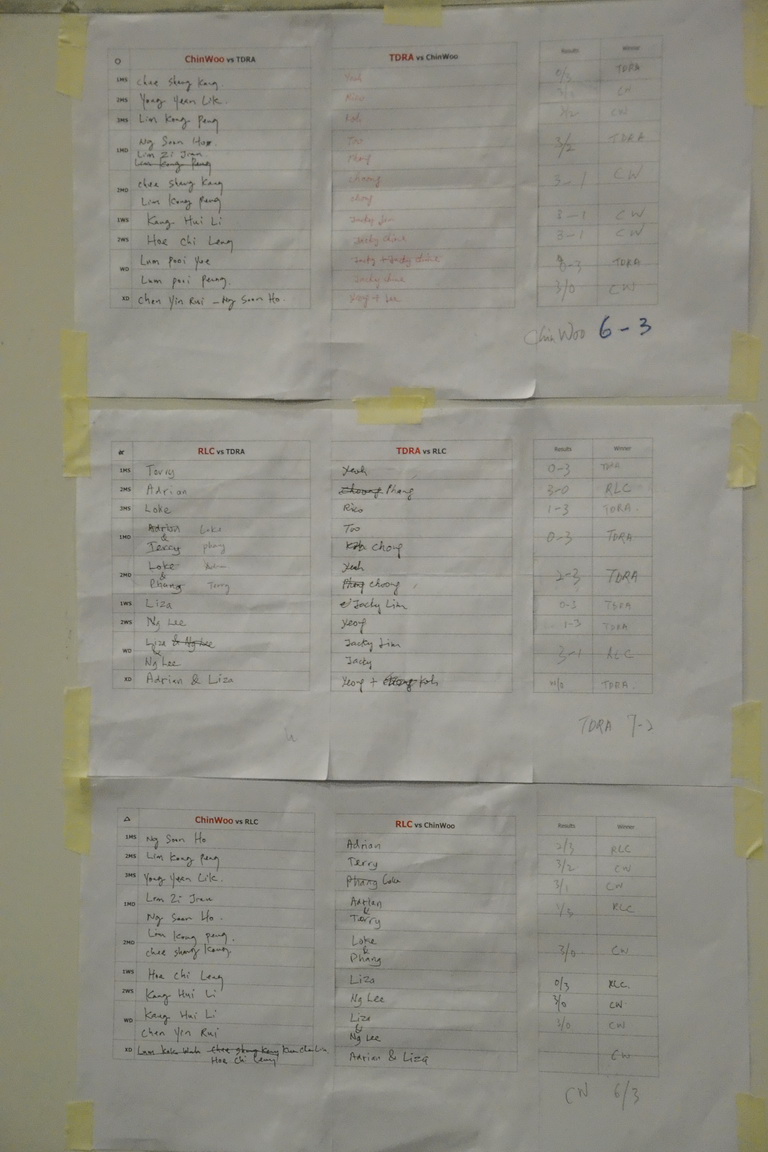 ChinWoo vs TDRA TDRA vs ChinWoo Results Winner
1MS Chee Sheng Kang Yeoh 0/3 TDRA
2MS Yong Yeen Lik. CW
3MS Lim Kong Peng Koh CW
1MD Ng Soon Ho. Too 3/2 TDRA
Lim Zi Jian
Lim Kong Peng Phang
2MD Chee Sheng Kang Choong 3-1 CW
Lim Kong Peng
1WS Kang Hui Li Jacky Lim 3-1 CW
2WS Hoe Chi Leng Jacky 3-1 CW
WD Lum Pooi Yee 0-3 TDRA
Lum Pooi Peung. Jacky
XD Chen Yin Rui - Ng Soon Ho. 3/0 CW
ChinWoo 6-3
RLC vs TDRA TDRA vs RLC Results Winner
1MS Terry Yeoh 0-3 TDRA
2MS Adrian Choong Phang 3-0 RLC
3MS Loke Rico 1-3 TDRA
1MD Adrian Loke Too 0-3 TDRA
&
Terry Phang Koh Chong
2MD Loke Yeoh 2-3 TDRA
&
Phang Terry Phang Choong
1WS Liza Jacky Lim 0-3 TDRA
2WS Ng Lee Yeong 1-3 TDRA
WD Liza & Ng Lee Jacky Lim 3-1 RLC
&
Ng Lee Jacky
XD Adrian & Liza Yeong + Koh W/O TDRA
TDRA 7-2
ChinWoo vs RLC RLC vs ChinWoo Results Winner
1MS Ng Soon Ho Adrian 2/3 RLC
2MS Lim Kong Peng Terry 3/2 CW
3MS Yong Yeen Lik. Phang Loke 3/1 CW
1MD Lim Zi Jian Adrian RLC
&
Ng Soon Ho. Terry
2MD Lim Kong Peng. Loke 3/0 CW
&
Chee Sheng Kang Phang
1WS Hoe Chi Leng Liza 0/3 RLC
2WS Kang Hui Li Ng Lee 3/0 CW
WD Kang Hui Li Liza 3/0 CW
&
Chen Yin Rui Ng Lee
XD Chee Sheng Kang Adrian & Liza CW
Hoe Chi Leng
CW 6/3